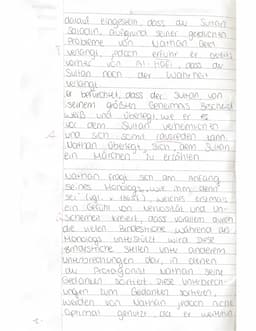 darauf eingestellt, dass der Sultan
Saladin, aufgrund seiner geldlichen
Probleme von Nathan Geld
verlangt, jedoch erfuhr er bereits
vorher von Al-Hafi, dass der
Sultan nach der Wahrheit
verlangt.
Er befürchtet, dass der Sultan von
seinem größten Geheimnis Bescheid
weiß und überlegt, wie er es
vor dem Sultan verheimlichen
und sich somit rausreden kann.
Nathan überlegt sich, dem Sultan
ein Märchen zu erzählen.
Nathan fragt sich am Anfang
seines Monologs, wie ihm denn
sei (vgl. v. ), welches erstmals
ein Gefühl von Nervosität und Un-
sicherheit kreiert, dass vorallem durch
die vielen Bindestriche während des
Monologs unterstützt wird. Diese
Bindestriche stellen unter anderem
Unterbrechungen dar, in denen
der Protagonist Nathan seine
Gedanken sortiert. Diese Unterbrech-
ungen zum Gedanken sortieren,
werden von Nathan jedoch nicht
optimal genutzt, da er weiterhin